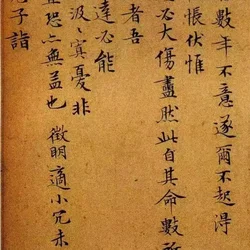 數年不意遂爾不起得
悵伏惟
必大傷盡然此自其命數所
者吾
達必能
汲汲寘憂非
恐亡無益也 徵明適小冗未
子詣